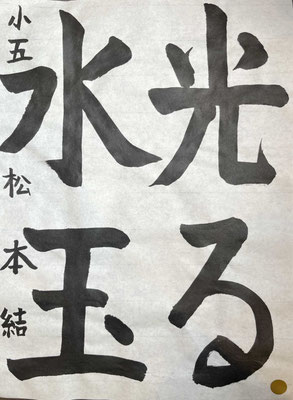 光る
水玉
小五 松本結